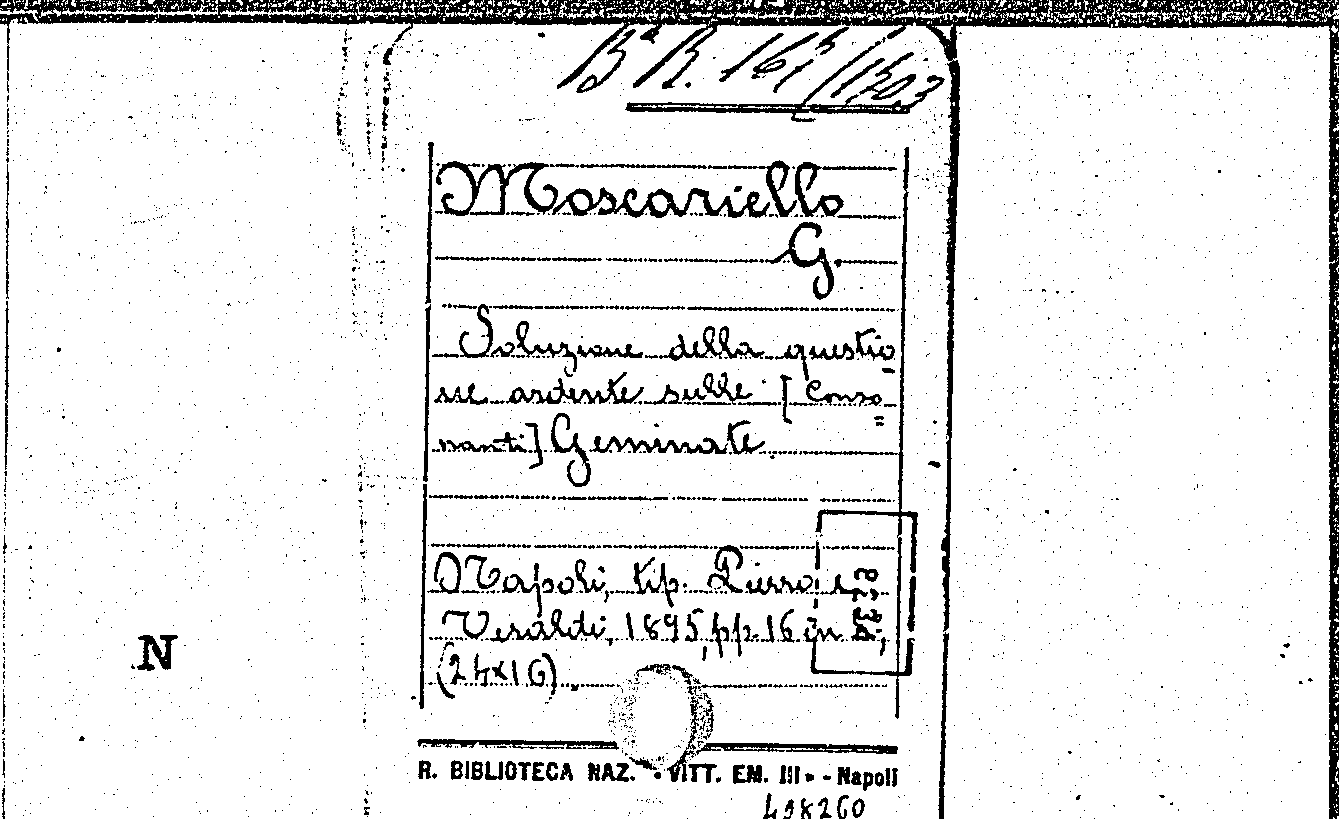 Bª R. 16
Moscariello
G.
Soluzione della questio
ne ardente sulle [Conso
nanti] Geminate.
Napoli, tip. Pierro e
Veraldi, 1895, pp. 16 in 8º,
(24×16).
N
R. BIBLIOTECA NAZ. «VITT. EM. III» - Napoli
498260